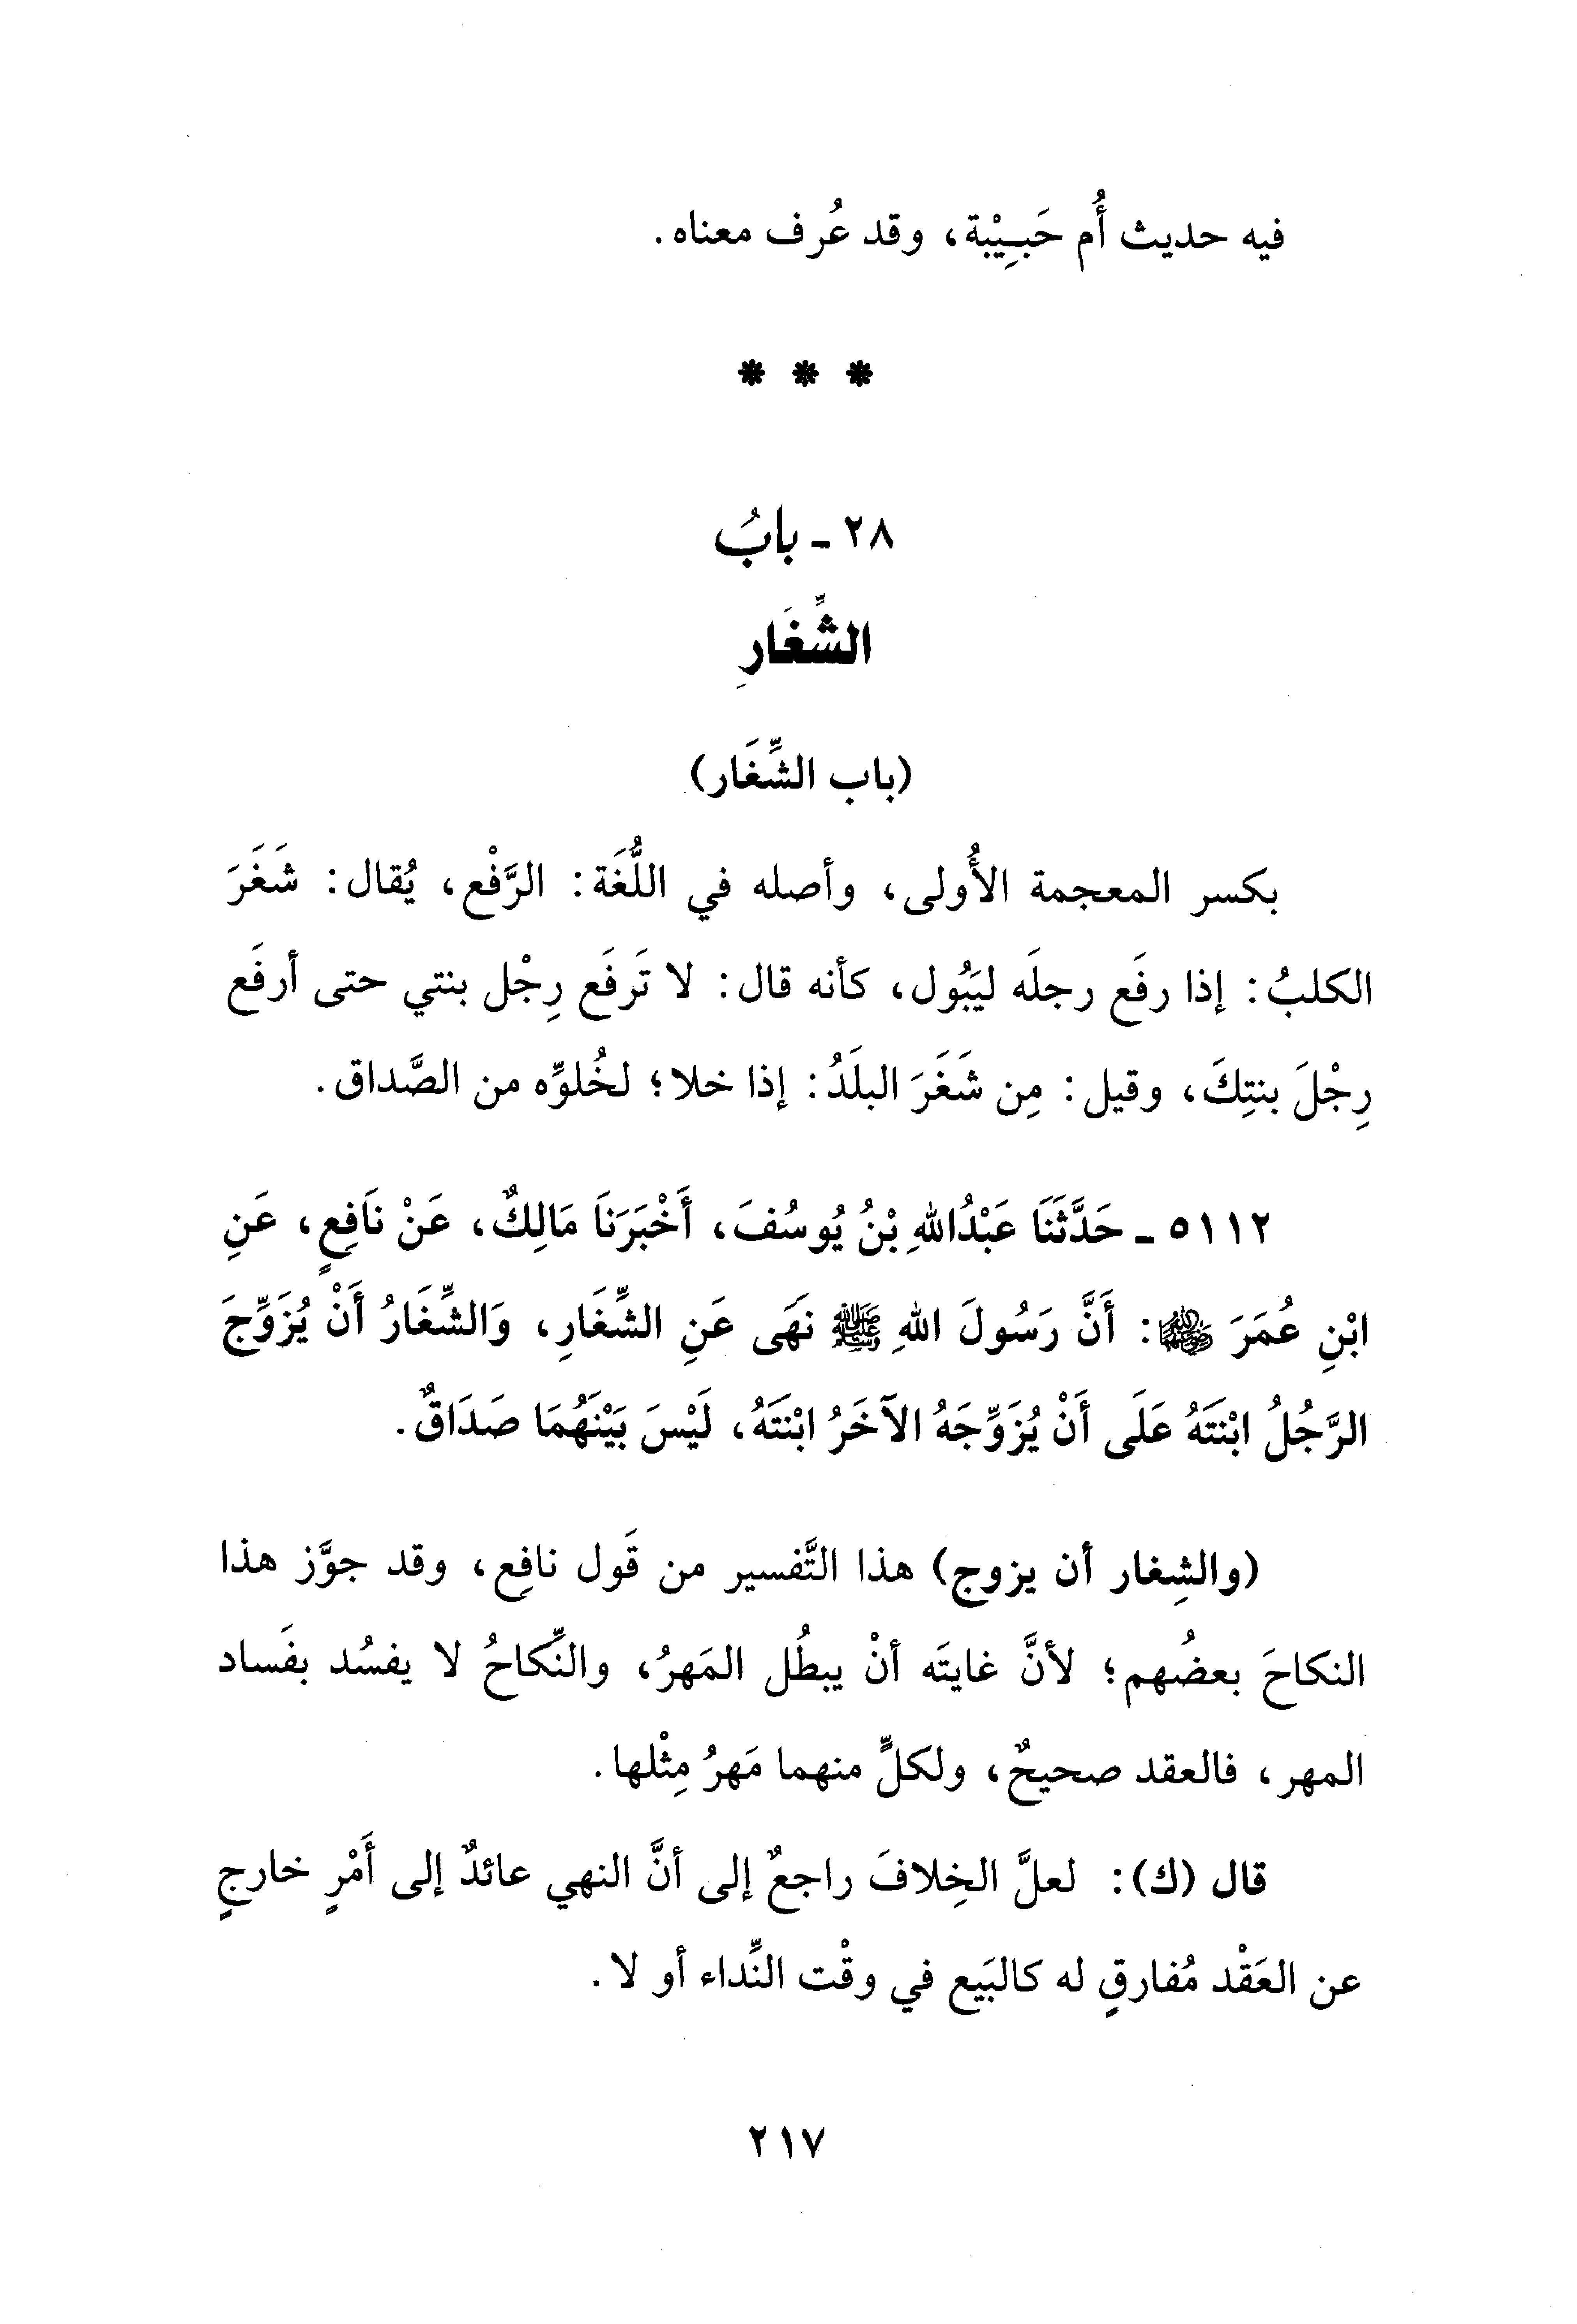 فيه حديث أُم حَبِيْبة، وقد عُرف معناه.
* * *
٢٨ ـ بابُ
الشِّغَارِ
(باب الشِّغَار)
بكسر المعجمة الأُولى، وأصله في اللُّغَة: الرَّفْع، يُقال: شَغَرَ
الكلبُ: إذا رفَع رجلَه ليَبُول، كأنه قال: لا تَرفَع رِجْل بنتي حتى أرفَع
رِجْلَ بنتِكَ، وقيل: مِن شَغَرَ البلَدُ: إذا خلا؛ لخُلوِّه من الصَّداق.
٥١١٢ ـ حَدَّثَنَا عَبْدُاللهِ بْنُ يُوسُفَ، أَخْبَرَنَا مَالِكٌ، عَنْ نَافِعٍ، عَنِ
ابْنِ عُمَرَ رضي الله عنهما: أَنَّ رَسُولَ اللهِ ﷺ نَهَى عَنِ الشِّغَارِ، وَالشِّغَارُ أَنْ يُزَوِّجَ
الرَّجُلُ ابْنَتَهُ عَلَى أَنْ يُزَوِّجَهُ الآخَرُ ابْنَتَهُ، لَيْسَ بَيْنَهُمَا صَدَاقٌ.
(والشِغار أن يزوج) هذا التَّفسير من قَول نافِع، وقد جوَّز هذا
النكاحَ بعضُهم؛ لأنَّ غايتَه أنْ يبطُل المَهرُ، والنِّكاحُ لا يفسُد بفَساد
المهر، فالعقد صحيحٌ، ولكلٍّ منهما مَهرُ مِثْلها.
قال (ك): لعلَّ الخِلافَ راجعٌ إلى أنَّ النهي عائدٌ إلى أَمْرٍ خارجٍ
عن العَقْد مُفارقٍ له كالبَيع في وقْت النِّداء أو لا.
٢١٧